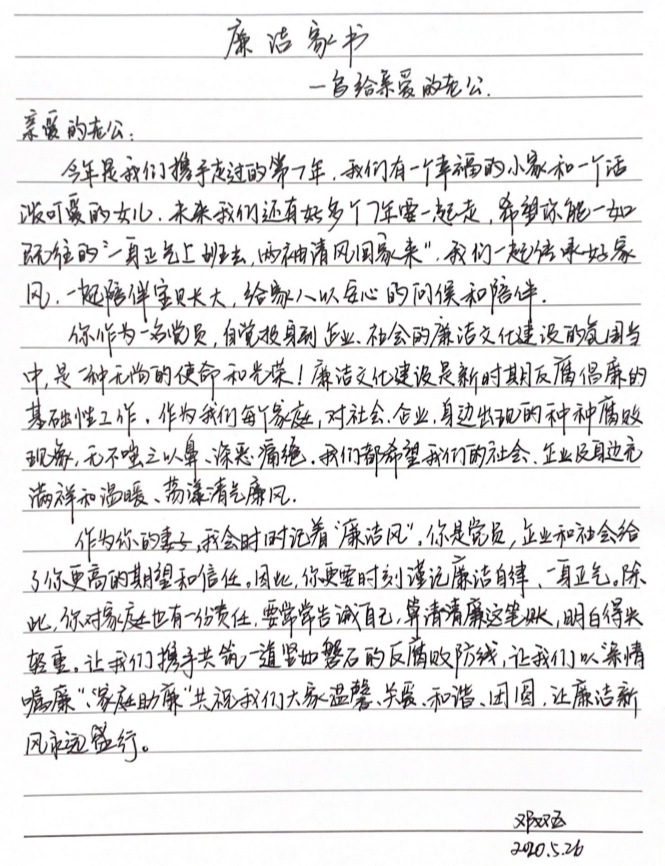 廉洁家书
—写给亲爱的老公.
亲爱的老公:
今年是我们携手走过的第7年,我们有一个幸福的小家和一个活
泼可爱的女儿.未来我们还有好多个7年要一起走,希望你能一如
既往的“一身正气上班去,两袖清风回家来”.我们一起传承好家
风,一起陪伴宝贝长大,给家人以安心的问候和陪伴.
你作为一名党员,自觉投身到企业、社会的廉洁文化建设的氛围当
中,是一种无尚的使命和光荣!廉洁文化建设是新时期反腐倡廉的
基础性工作.作为我们每个家庭,对社会、企业、身边出现的种种腐败
现象,无不嗤之以鼻、深恶痛绝.我们都希望我们的社会、企业及身边充
满祥和温暖、荡漾清气廉风.
作为你的妻子,我会时时记着“廉洁风”.你是党员,企业和社会给
了你更高的期望和信任。因此,你更要时刻谨记廉洁自律、一身正气。除
此,你对家庭也有一份责任,要常常告诫自己,算清清廉这笔账,明白得失
轻重。让我们携手共筑一道坚如磐石的反腐败防线,让我们以“亲情
嘱廉”、“家庭助廉”共祝我们大家温馨、关爱、和谐、团圆,让廉洁新
风永远盛行。
邓双
2020.5.26